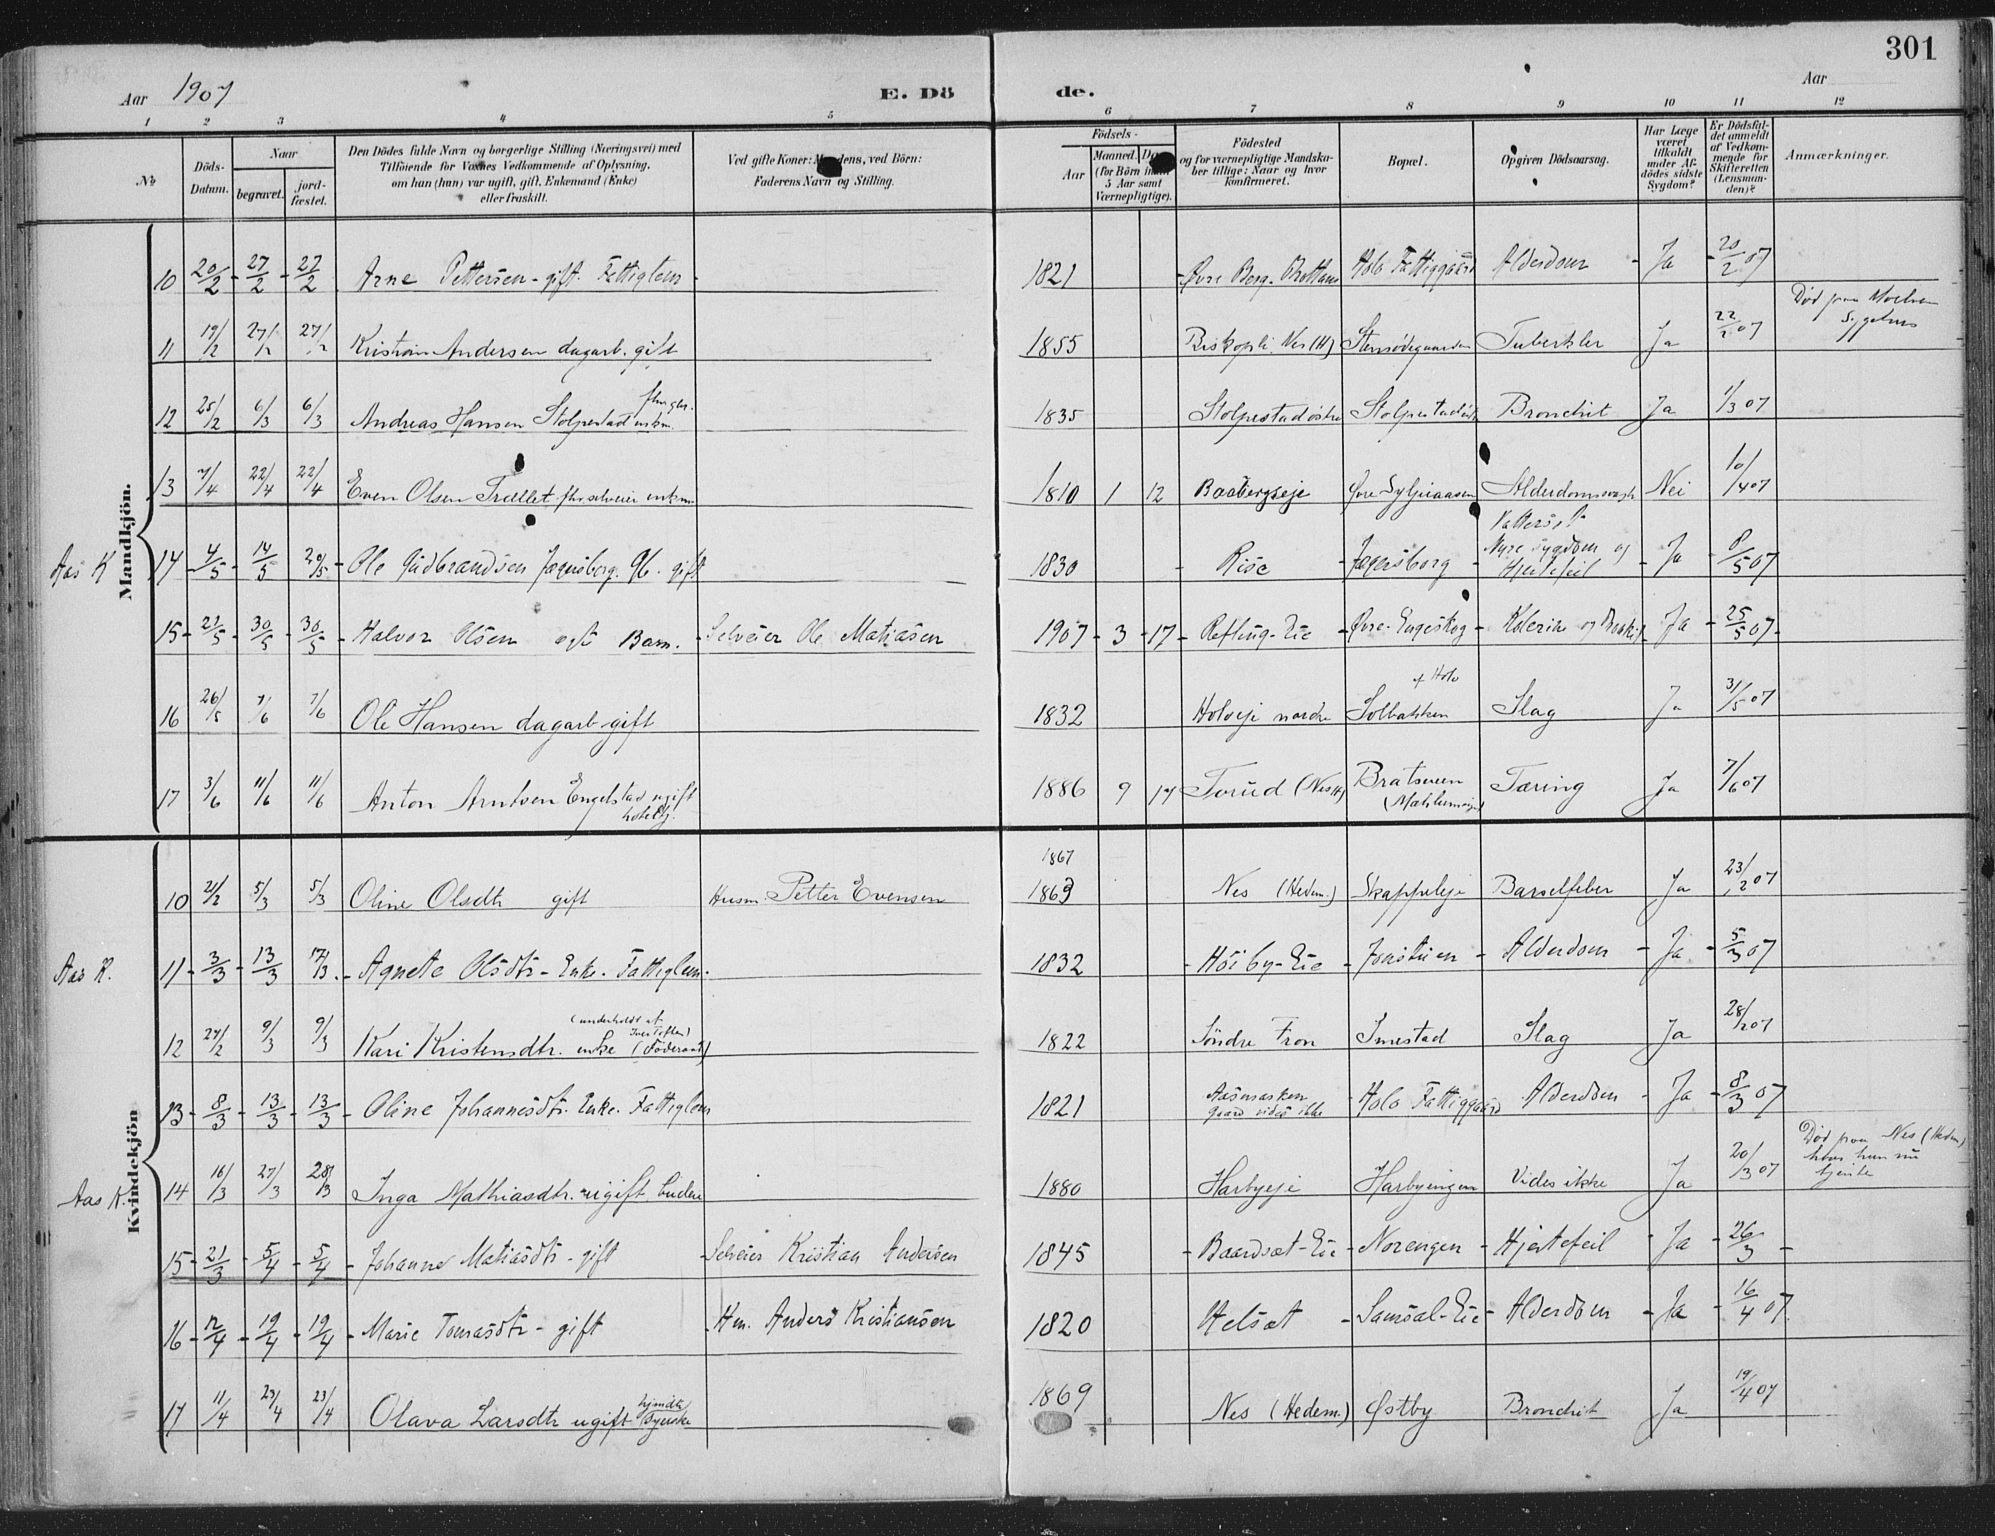 301
Aar 1907 E. Dö de. Aar
1 2 3 4 5 6 7 8 9 10 11 12
No.
Döds-Datum.
Naar
begravet.
jord-fæstet.
Den Dödes fulde Navn og borgerlige Stilling (Næringsvei) med
Tilföiende for Voxnes Vedkommende af Oplysning,
om han (hun) var ugift, gift, Enkemand (Enke)
eller fraskilt.
Ved gifte Koner: Mandens, ved Börn:
Faderens Navn og Stilling.
Födsels-
Aar
Maaned. Dag
(for Börn inden
5 Aar samt
Værnepligtige).
Födested
og for værnepligtige Mandska-
ber tillige: Naar og hvor
konfirmeret.
Bopæl.
Opgiven Dödsaarsag.
Har Læge
været
tilkaldt
under Af-
dödes sidste
Sygdom?
Er Dödsfal-
det anmeldt
af Vedkom-
mende for
Skifteretten
(Lensman-
den)?
Anmærkninger.
Mandkjön.
10 20/2 - 27/2 - 27/2 Arne Pettersen - gift Fattiglem - 1821 - Øvre Berg - Holo Fattiggaard Alderdom - Ja - 20/2 07
11 19/2 27/2 27/2 Kristian Andersen dagarb. gift 1855 Biskopli Nes (H) Stensødegaarden Tuberkler Ja 22/2 07 Død paa
12 25/2 6/3 6/3 Andreas Hansen Stolpestad enkm. 1835 Stolpestad østre Stolpestad Bronchit Ja 1/3 07
13 7/4 22/4 22/4 Even Olsen Trællet fhv. selveier enkm. 1810 1 12 Baabergseje Øvre Alderdomssvagh Nei 10/4 07
Aas K 14 4/5 - 14/5 20/5 - Ole Gudbrandsen Jægersborg. gift 1830 - Rise - Jægersborg - Vattersot Nyresygdom og Hjertefeil - Ja - 8/5 07
15 - 21/5 - 30/5 - 30/5 - Halvor Olsen Barn. - Selveier Ole Matiasen 1907 - 3 - 17 - Refling-Eie - Øvre-Engeskog - - Ja - 25/5 07 -
16 26/5 7/6 7/6 Ole Hansen dagarb. gift 1832 Holoeje nordre Solbakken Slag Ja 31/5 07
17 3/6 11/6 11/6 Anton Arntsen Engelstad ugift 1886 9 17 Torud (Nes H) Bratsveen Tæring Ja 7/6 07
Kvindekjön
10 21/2 5/3 5/3 Oline Olsdtr gift Husm. Petter Evensen 1867 1863 Nes (Hedem.) Skappeleje Barselfeber Ja 23/2 07
Aas K. 11 - 3/3 - 13/3 17/3 - Agnete Olsdtr - Enke. Fattiglem. 1832 - Höiby-Eie - - Alderdom - Ja - 5/3 07
12 27/2 9/3 9/3 Kari Kristensdtr. enke (underholdt af Iver Toften) (Föderaad) 1822 Söndre Fron Smestad Slag Ja 28/2 07
13 - 8/3 - 13/3 - 13/3 - Oline Johannesdtr. Enke. Fattiglem 1821 Aasmarken gaard vides ikke Holo Fattiggaard Alderdom - Ja - 8/3 07
Aas K. 14 16/3 27/3 28/3 Inga Mathiasdtr. ugift budeie 1880 Harbyeje Harbyeingen Vides ikke Ja 20/3 07 Död paa Nes (Hedem) hvor hun nu tjente
15 - 21/3 - 5/4 - 5/4 - Johanne Matiasdtr - gift - Selveier Kristian Andersen 1845 - Baardset-Eie - Norengen - Hjertefeil - Ja - 26/3 -
16 - 12/4 - 19/4 - 19/4 - Marie Tomasdtr - gift - Hm. Anders Kristiansen 1820 Helset - Samsal-Eie - Alderdom - Ja - 16/4 07
17 11/4 23/4 23/4 Olava Larsdtr ugift Syerske 1869 Nes (Hedem.) Østby Bronchit Ja 19/4 07